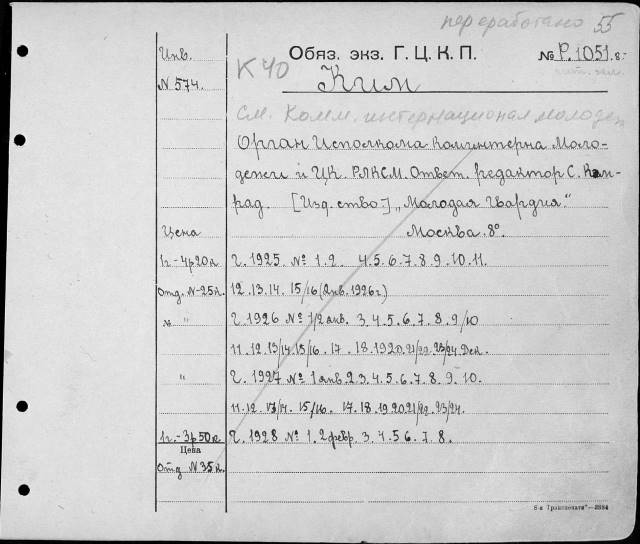 переработано 55
Инв. Обяз. экз. Г. Ц. К. П. № Р. 1051.8-
N 574. К 40 Ким
См. Комм. интернационал молодеж
Орган Исполкома Коминтерна Моло-
дежи и ЦК. РЛКСМ. Ответ. редактор С. Кам-
рад. [Изд-ство:] „Молодая Гвардия."
Цена Москва. 8°.
1г.-4р20к Г. 1925 № 1. 2. 4. 5. 6. 7. 8. 9. 10. 11.
Отд. N-25к. 12. 13. 14. 15/16 (янв. 1926 г.)
" Г. 1926 № 1/2 янв. 3. 4. 5. 6. 7. 8. 9/10
11. 12. 13/14. 15/16. 17. 18. 19 20. 21/22. 23/24 Дек.
" Г. 1927 № 1 янв. 2. 3. 4. 5. 6. 7. 8. 9. 10.
11. 12. 13/14. 15/16. 17. 18. 19 20. 21/22. 23/24.
1г.-3р50к Г. 1928 № 1. 2 февр. 3. 4. 5. 6. 7. 8.
Цена
Отд N 35к.
8-я Транспечати"—3884